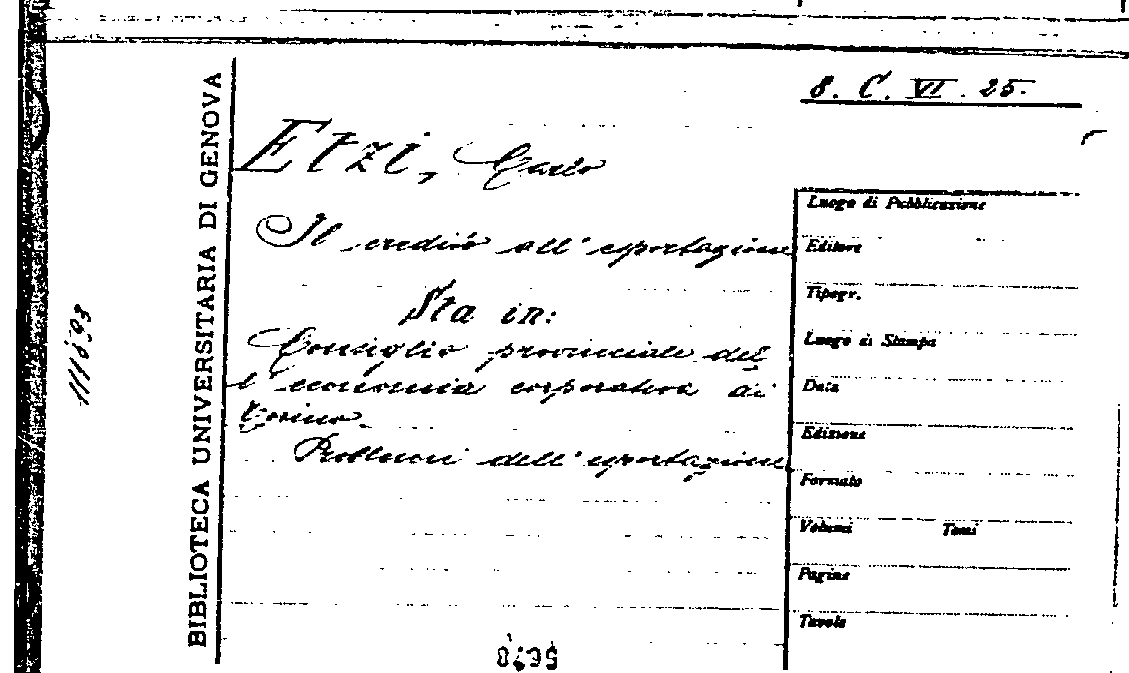 8. C. VI. 25.
BIBLIOTECA UNIVERSITARIA DI GENOVA
Etzi, Carlo
Il credito all'esportazione
Sta in:
Consiglio provinciale del
l'economia corporativa di
Torino.
Problemi dell'esportazione
Luogo di Pubblicazione
Editore
Tipogr.
Luogo di Stampa
Data
Edizione
Formato
Volumi Tomi
Pagine
Tavole